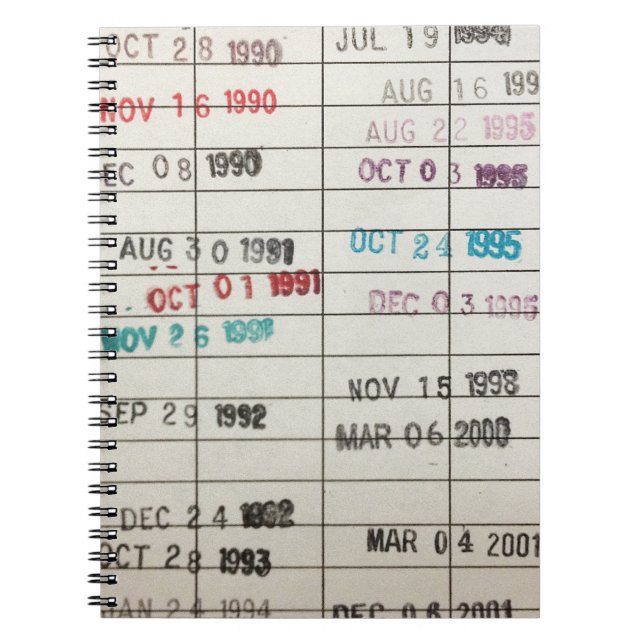 OCT 28 1990
NOV 16 1990
EC 08 1990
AUG 30 1991
OCT 01 1991
NOV 26 1991
SEP 29 1992
DEC 24 1992
OCT 28 1993
JAN 24 1994
JUL 19
AUG 16 199
AUG 22 1995
OCT 03 1995
OCT 24 1995
DEC 03 1995
NOV 15 1998
MAR 06 2000
MAR 04 2001
DEC 06 2001